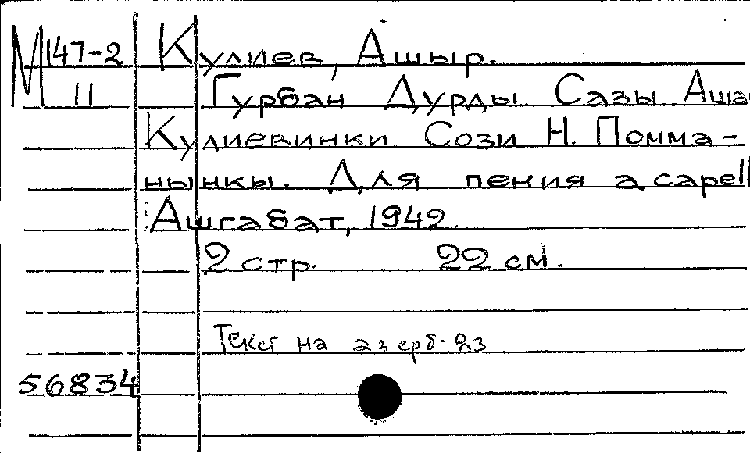 М 147-2 Кулиев, Ашыр.
11 Гурбан Дурды. Сазы Аша
Кулиевинки Сози Н. Помма-
нынкы. Для пения a capell
Ашгабат, 1942
2 стр. 22 см.
Текст на азерб. яз
56834